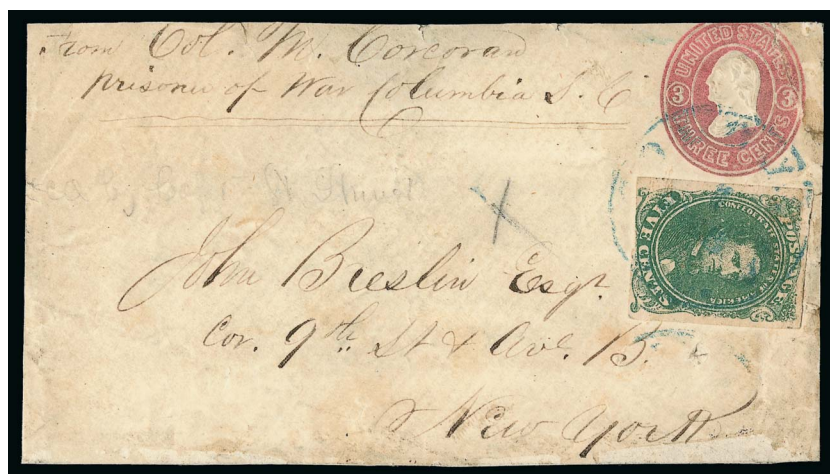 From Col. M. Corcoran
prisoner of War Columbia S. C
UNITED STATES
3 3
THREE CENTS
POSTAGE
CONFEDERATE STATES OF AMERICA
FIVE CENTS
5 5
John Breslin Esqr.
Cor. 9th St & Ave. B.
New York